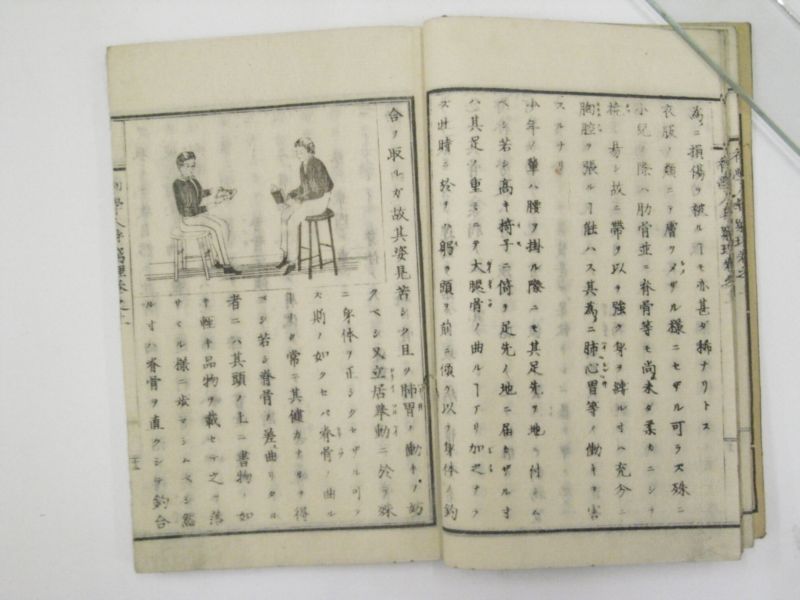 為ニ損傷ヲ被ルヿモ亦甚ダ稀ナリトス
衣服ノ類ニテ層ヲメザル様ニセザル可ラズ殊ニ
小兒ノ際ハ肋骨並ニ脊骨等モ尚未ダ柔カニシテ
撓ミ易シ故ニ帶ヲ以テ強ク身ヲ縛ルオハ充分ニ
胸腔ヲ張ルヿ能ハズ其為ニ肺心胃等ノ働キヲ害
スルナリ
少年ノ輩ハ腰ヲ掛ル際ニモ其足先ヲ地ニ付
ベシ若シ高キ椅子ニ倚テ足先ノ地ニ届カザルオ
ハ其足ノ重ミヲ大腿骨ノ曲ルヿアリ加之ナラ
ズ此時ニ於テ躬ヲ頭ヲ前ニ傾ケ以テ身体ノ釣
合ヲ取ルガ故其姿見苦シク且ツ肺胃ノ働キヲ妨
クベシ又立居擧動ニ於テ殊
ニ身体ヲ正シクセザル可ラ
ズ斯ノ如クセバ脊骨ノ曲ル
ナク常ニ其健カナルヲ得
ベシ若シ脊骨ノ差曲リタル
者ニハ其頭ノ上ニ書物ノ如
キ輕キ品物ヲ載セテ之ヲ落
サヾル様ニ歩マシムベシ然
ルオハ脊骨ヲ直クシテ釣合